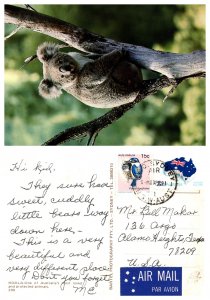 Hi kid,
They sure have
sweet, cuddly
little bears way
down here -
This is a very
beautiful and
very different place
Don't you forget
Mc
Mr Bill
126 Argo
Alamo Heights, Texas
78209
U.S.A.
AIR MAIL
PAR AVION